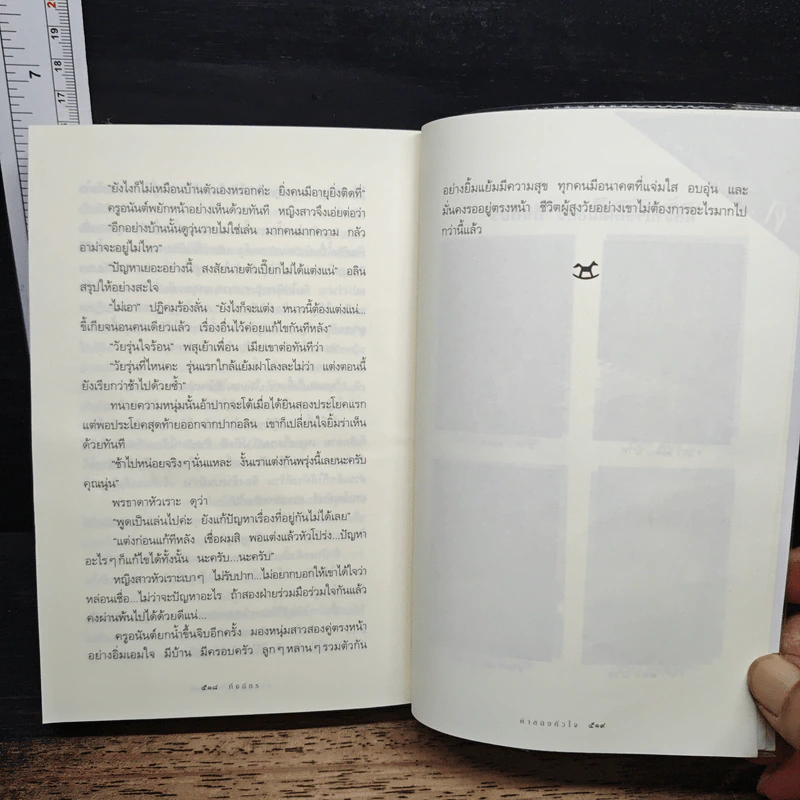 7
20
19
18
17
"ยังไงก็ไม่เหมือนบ้านตัวเองหรอกค่ะ ยิ่งคนมีอายุยิ่งติดที่"
ครูอนันต์พยักหน้าอย่างเห็นด้วยทันที หญิงสาวจึงเอ่ยต่อว่า
"อีกอย่างบ้านนั้นดูวุ่นวายไม่ใช่เล่น มากคนมากความ กลัว
อาม่าจะอยู่ไม่ไหว"
"ปัญหาเยอะอย่างนี้ สงสัยนายตัวเปี๊ยกไม่ได้แต่งแน่" อลิน
สรุปให้อย่างสะใจ
"ไม่เอา" ปฏิคมร้องลั่น "ยังไงก็จะแต่ง หนาวนี้ต้องแต่งแน่...
ขี้เกียจนอนคนเดียวแล้ว เรื่องอื่นไว้ค่อยแก้ไขกันทีหลัง"
"วัยรุ่นใจร้อน" พสุเย้าเพื่อน เมียเขาต่อทันทีว่า
"วัยรุ่นที่ไหนคะ รุ่นแรกใกล้แย้มฝาโลงละไม่ว่า แต่งตอนนี้
ยังเรียกว่าช้าไปด้วยซ้ำ"
ทนายความหนุ่มนั้นอ้าปากจะโต้เมื่อได้ยินสองประโยคแรก
แต่พอประโยคสุดท้ายออกจากปากอลิน เขาก็เปลี่ยนใจยิ้มร่าเห็น
ด้วยทันที
"ช้าไปหน่อยจริงๆ นั่นแหละ งั้นเราแต่งกันพรุ่งนี้เลยนะครับ
คุณนุ่น"
พรธาดาหัวเราะ ดุว่า
"พูดเป็นเล่นไปค่ะ ยังแก้ปัญหาเรื่องที่อยู่กันไม่ได้เลย"
"แต่งก่อนแก้ทีหลัง เชื่อผมสิ พอแต่งแล้วหัวโปร่ง...ปัญหา
อะไรๆ ก็แก้ไขได้ทั้งนั้น นะครับ...นะครับ"
หญิงสาวหัวเราะเบาๆ ไม่รับปาก...ไม่อยากบอกให้เขาได้ใจว่า
หล่อนเชื่อ...ไม่ว่าจะปัญหาอะไร ถ้าสองฝ่ายร่วมมือร่วมใจกันแล้ว
คงผ่านพ้นไปได้ด้วยดีแน่...
ครูอนันต์ยกน้ำขึ้นจิบอีกครั้ง มองหนุ่มสาวสองคู่ตรงหน้า
อย่างอิ่มเอมใจ มีบ้าน มีครอบครัว ลูกๆ หลานๆ รวมตัวกัน
๕๑๘ กิ่งฉัตร
อย่างยิ้มแย้มมีความสุข ทุกคนมีอนาคตที่แจ่มใส อบอุ่น และ
มั่นคงรออยู่ตรงหน้า ชีวิตผู้สูงวัยอย่างเขาไม่ต้องการอะไรมากไป
กว่านี้แล้ว
ค่าของหัวใจ ๕๑๙